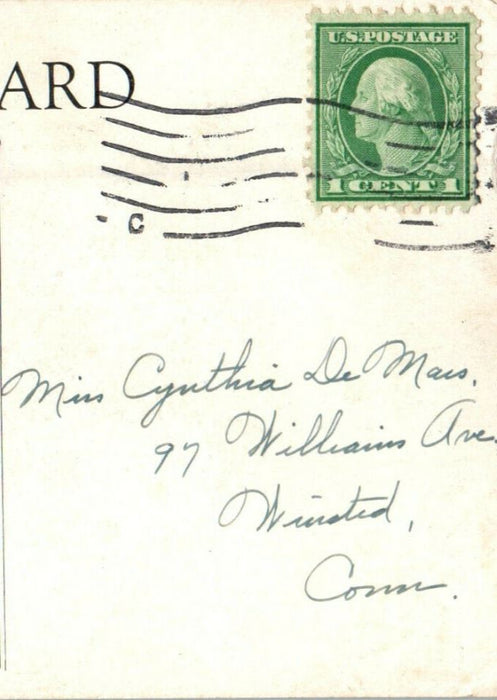 U.S. POSTAGE
ARD
1 CENT 1
C
Miss Cynthia De Mars.
97 Williams Ave.
Winsted,
Conn.